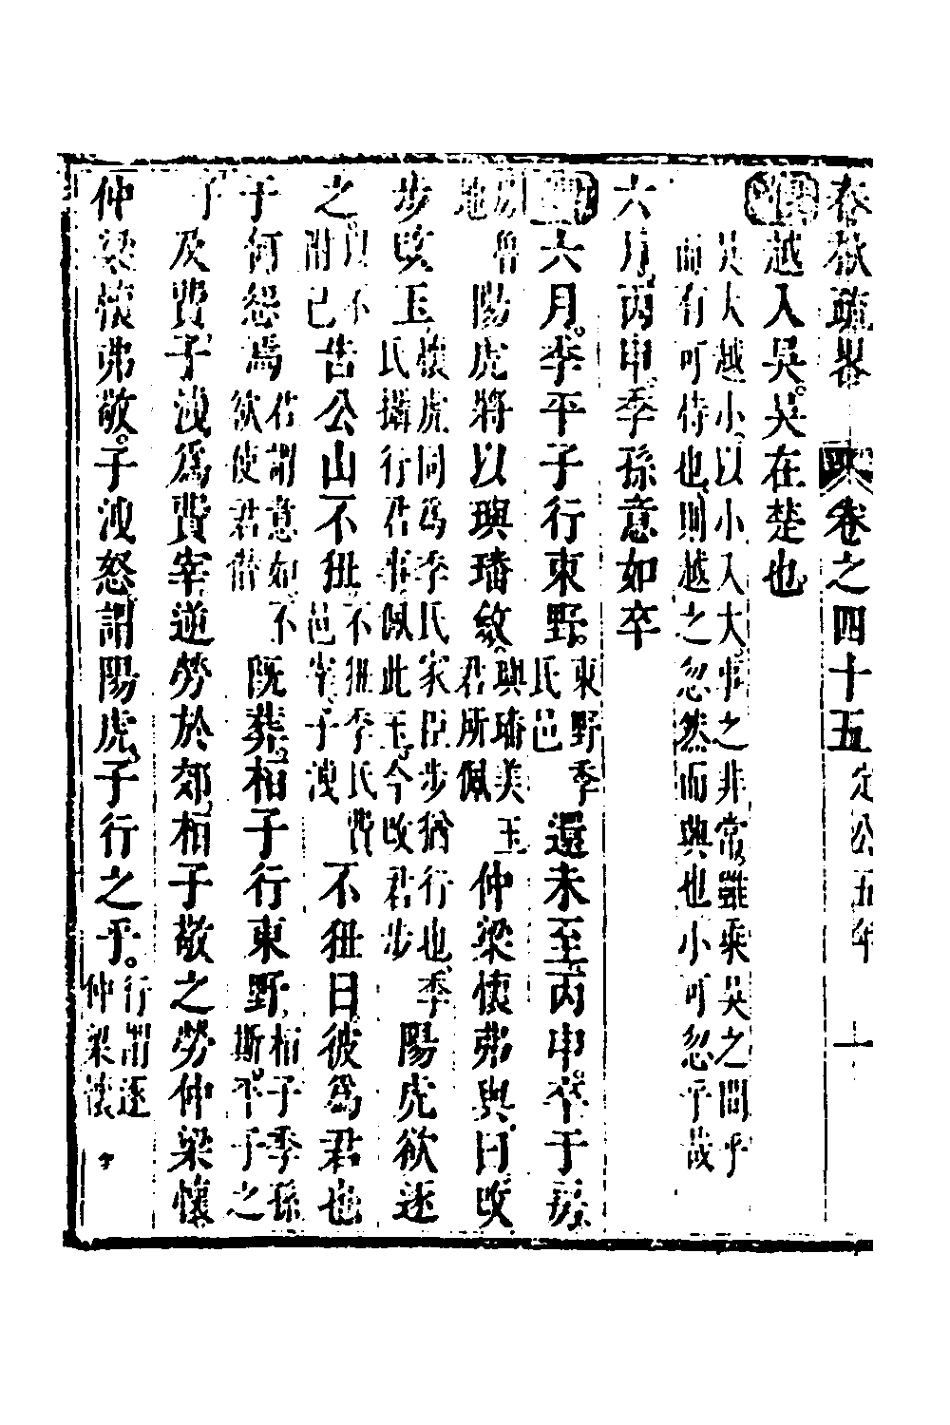 春秋疏畧 卷之四十五 定公五年 一
越入吳。吳在楚也
吳大越小。以小入大。事之非常。雖乘吳之間乎
而有可恃也。則越之忽然而興也。小可忽乎哉
六月丙申季孫意如卒
六月。季平子行東野。東野季氏邑還未至。丙申。卒于房。
房魯地陽虎將以璵璠斂。璵璠美玉君所佩仲梁懷弗與曰改
步改玉。懷虎同爲季氏家臣步猶行也。季氏攝行君事佩此玉。今改君步陽虎欲逐
之。以不附己告公山不狃。不狃季氏費邑宰子洩不狃曰。彼爲君也
子何怨焉君謂意如。不欲使君僭既葬。桓子行東野。桓子季孫斯。平子之
子及費。子洩爲費宰逆勞於郊。桓子敬之勞仲梁懷
仲梁懷弗敬。子洩怒。謂陽虎。子行之乎。行謂逐仲梁懷